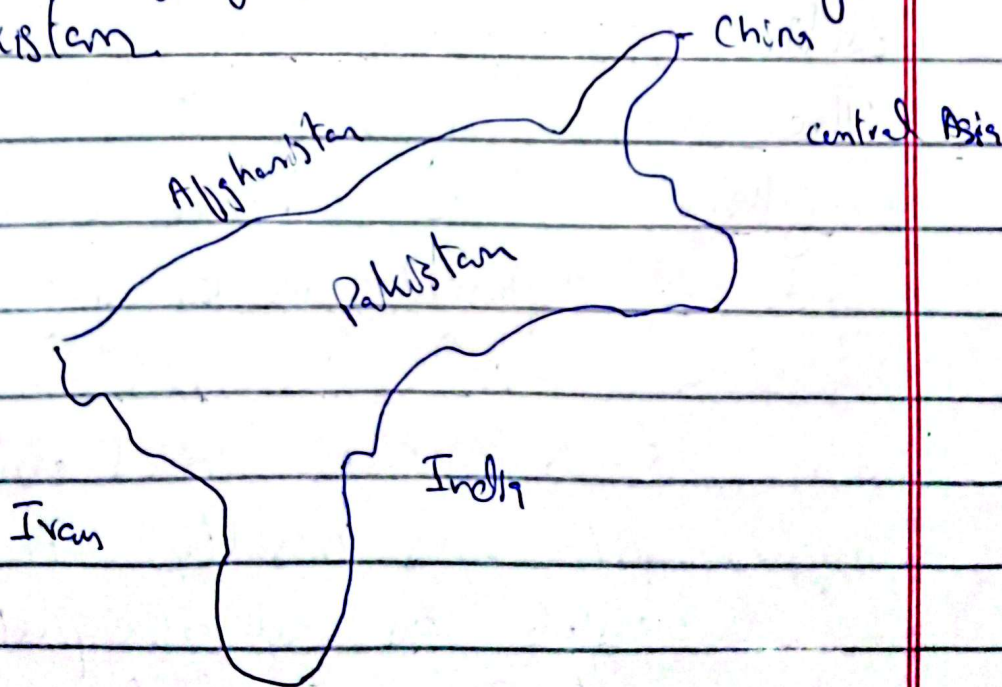 China
kistan
Central Asia
Afghanistan
Pakistan
India
Iran